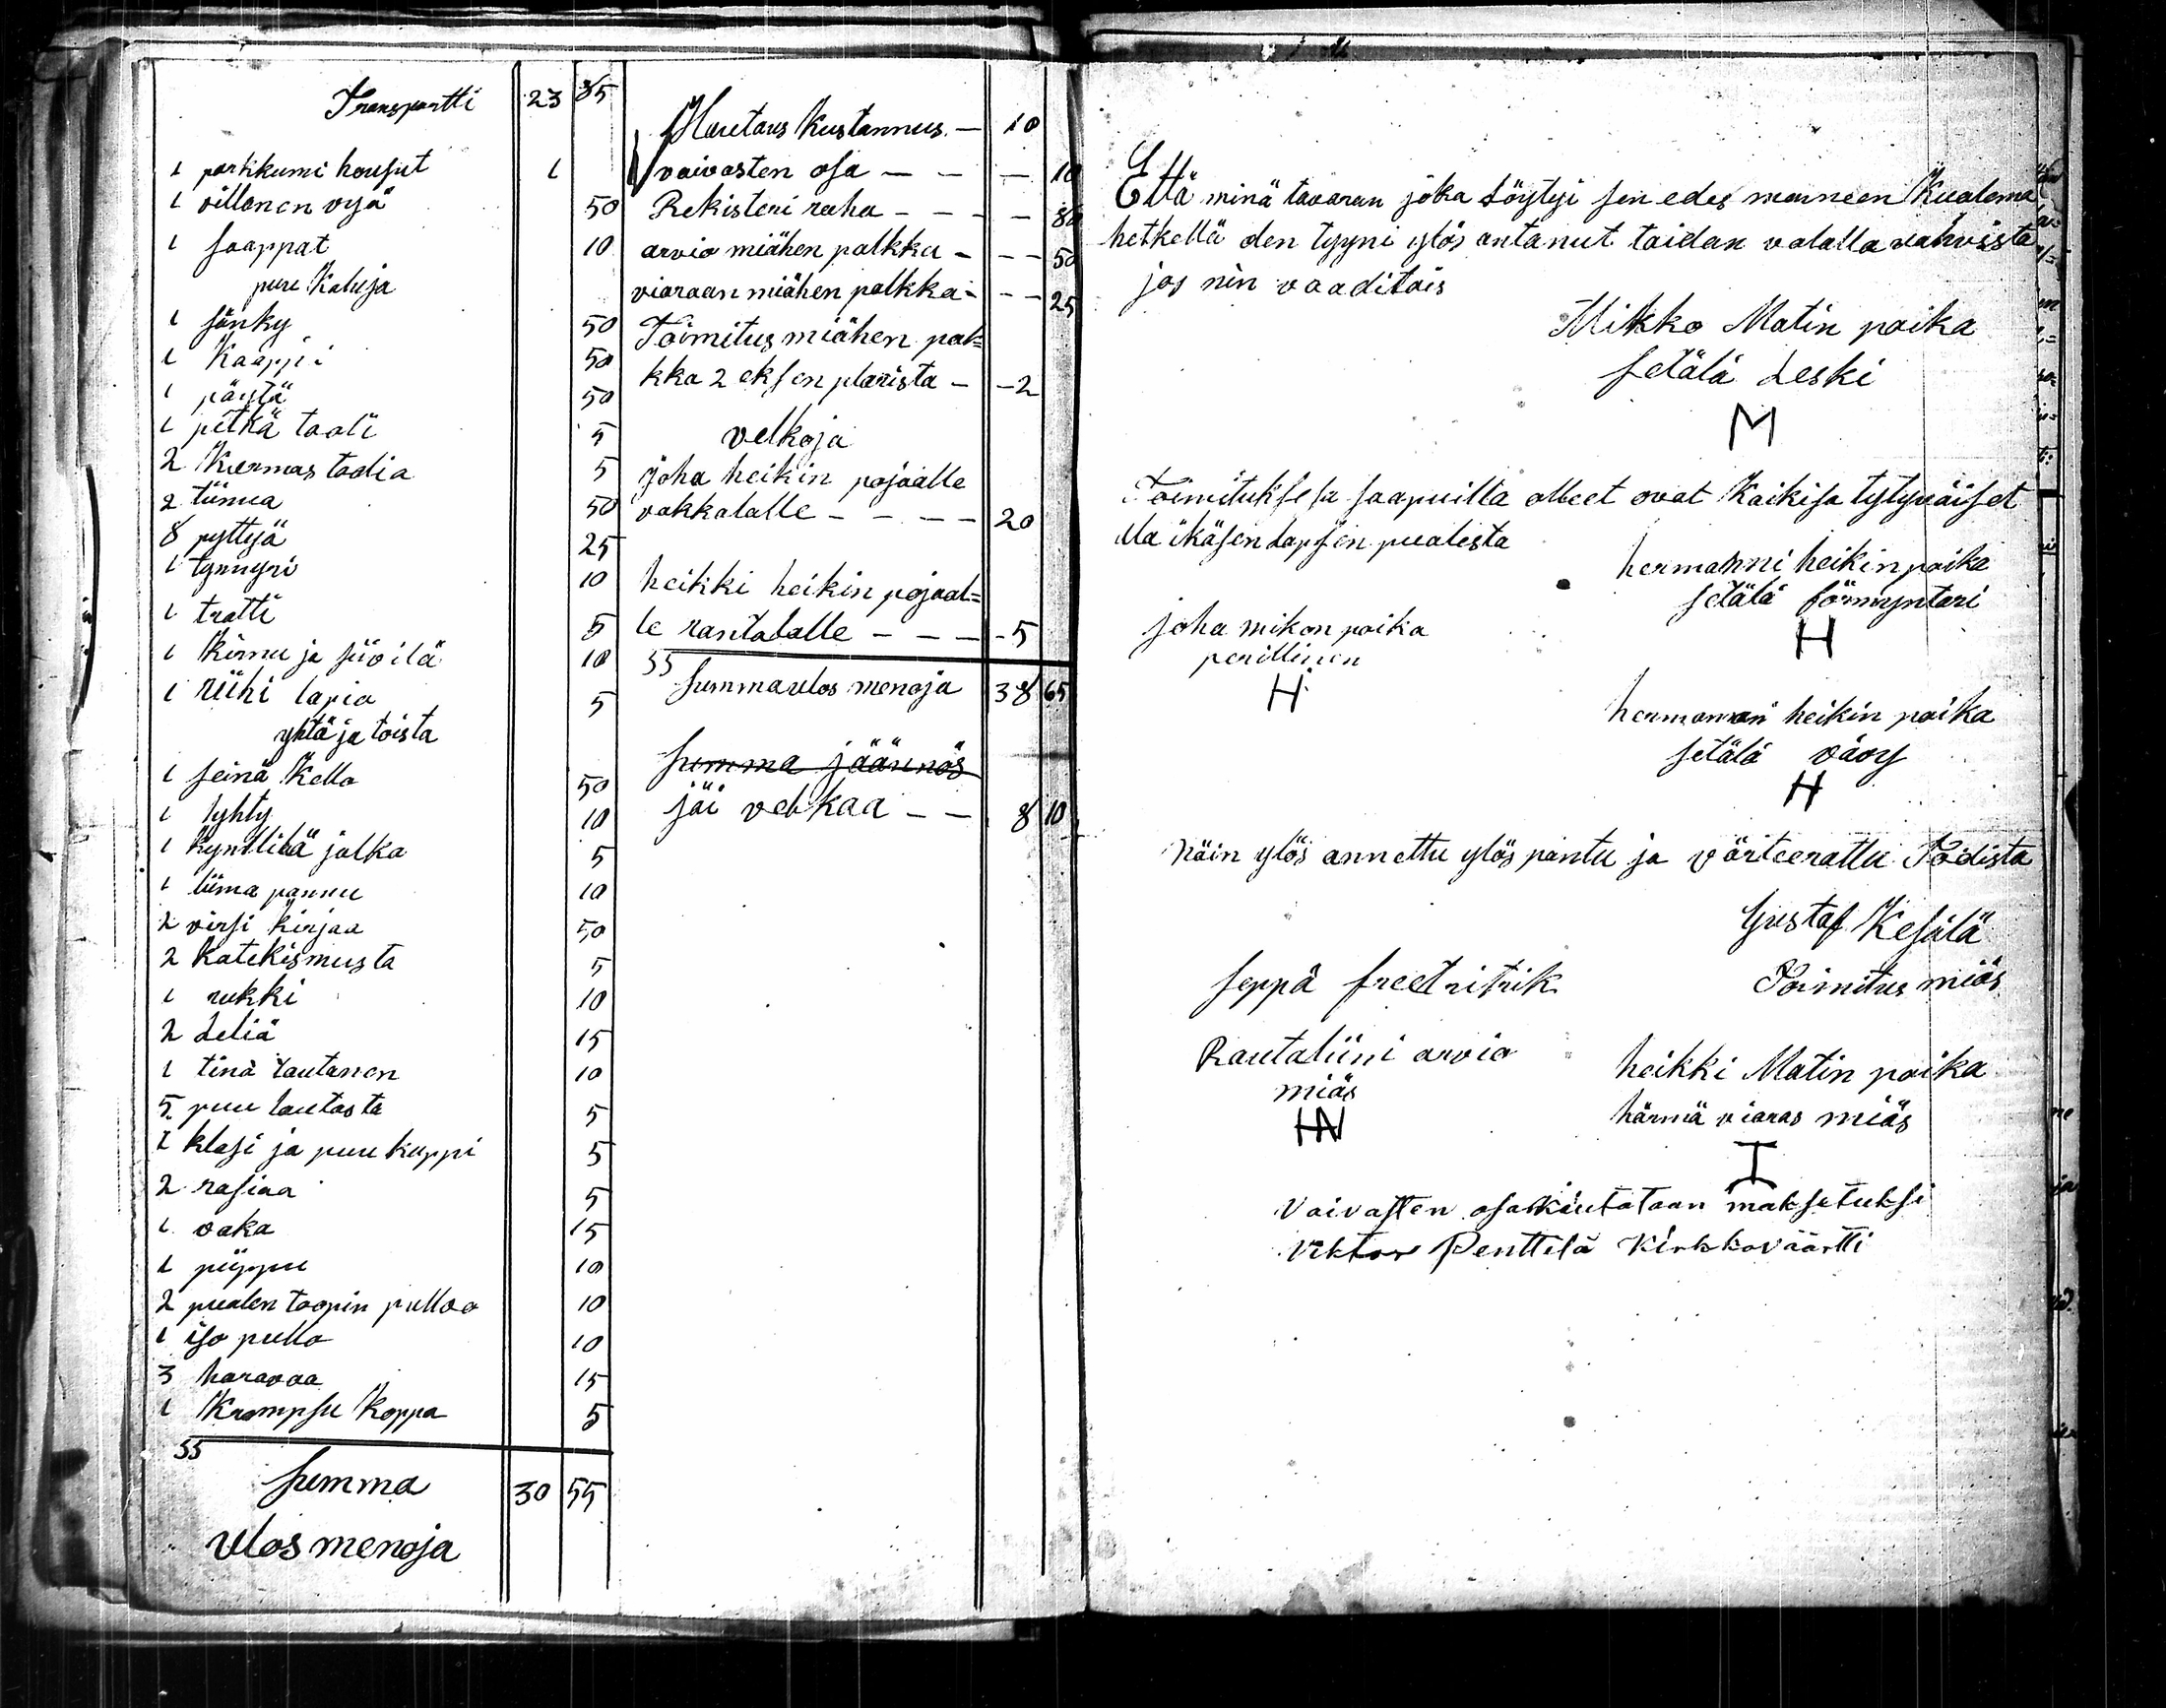 Transportti 23 85
1 parkkumi housut 1
1 villanen vyä 50
1 saappat 10
puu Kaluja
1 sänky 50
1 Kaappi 50
1 päytä 50
1 pitkä taoli 5
2 Kuermas taolia 5
2 tiinua 50
8 pyttyä 25
1 tynnyri 10
1 tratti 5
1 Kirnu ja siivilä 10
1 riihi lapia 5
yhtä ja toista
1 seinä Kello 50
1 lyhty 10
1 kynttilä jalka 5
1 liima pannu 10
2 virsi kirjaa 50
2 Katekismusta 5
1 rukki 10
2 Seliä 15
1 tina lautanen 10
5 puu lautasta 5
1 klasi ja puu kuppi 5
2 rasiaa 5
1 vaka 15
1 piippu 10
2 pualen toopin pulloa 10
1 iso pullo 10
3 haravaa 15
1 Krompsu Koppa 5
Summa 30 55
Ulos menoja
Hautaus Kustannus — 10
vaivasten osa — — — 10
Rekisteri raha — — — 80
arvio miähen palkka — — — 50
viaraan miähen palkka — — — 25
Toimitus miähen pal=
kka 2 eksenplarista — — 2
velkoja
joha heikin pojaalle
vakkalalle — — — — 20
heikki heikin pojaal=
le rantalalle — — — - 5
Summa ulos menoja 38 65
Summa jäännös
jäi velkaa — — 8 10
Että minä tavaran joka Löytyi sen edes menneen Kualema
hetkellä den tyyni ylös antanut taidan valalla vahvista
jos nin vaaditais
Mikko Matin poika
Setälä Leski
M
Toimituksesa saapuilla olleet ovat Kaikisa tytyväiset
Ala ikäsen Lapsen pualesta
hermanni heikin poika
Setälä förmyntari
H
joha mikon poika
perillinen
H
hermanni heikin poika
Setälä vävy
H
Näin ylös annettu ylös pantu ja värteerattu Todista
Gustaf Kesälä
Toimitus miäs
Seppä freetritrik
Rautaliini arvio
miäs
HN
heikki Matin poika
härmä viaras miäs
I
Vaivasten osa Kuitataan maksetuksi
Viktor Penttilä Kirkkoväärtti